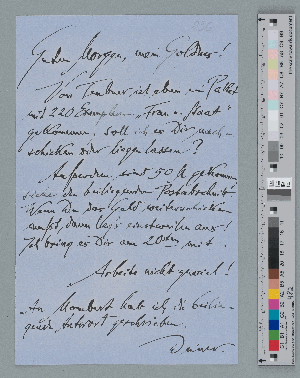 Guten Morgen, mein Goldner!
Von Teubner ist eben ein Paket
mit 220 Exempl. „Frau u. Staat“
gekommen. Soll ich es Dir nach-
schicken oder liegen lassen?
Außerdem sind 50 M gekommen
siehe den beiliegenden Postabschnitt.
Wenn Du das Geld weiterschicken
mußt, dann bitte einstweilen aus!
Ich bring es Dir am 20sten mit
Arbeite nicht zuviel!
An Mombert hab ich die beilie-
gende Antwort geschrieben.
Deiner.